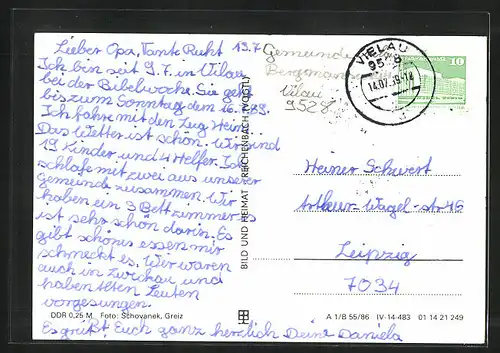 Lieber Opa, Tante Ruht 13.7
Ich bin seit 9.7. in Vilau
bei der Bibelwoche. Sie geht
bis zum Sonntag dem 16.7.89.
Ich fahre mit den Zug Heim.
Das Wetter ist schön. Wir sind
19 Kinder und 4 Helfer. Ich
schlafe mit zwei aus unserer
Gemeinde zusammen. Wir
haben ein 3 Bettzimmer es
ist sehr schön darin. Es
gibt schönes essen mir
schmeckt es. Wir waren
auch in Zwickau und
haben alten Leuten
vorgesungen.
DDR 0,25 M Foto: Schovanek, Greiz
Es grüßt Euch ganz herzlich Deine Daniela
BILD UND HEIMAT REICHENBACH (VOGTL)
Gemeinde
Vilau
9528
VIELAU
9528
14.07.89-14
10
Heiner Schwert
Arthur-Nagel-str 46
Leipzig
7034
A 1/B 55/86 IV-14-483 01 14 21 249